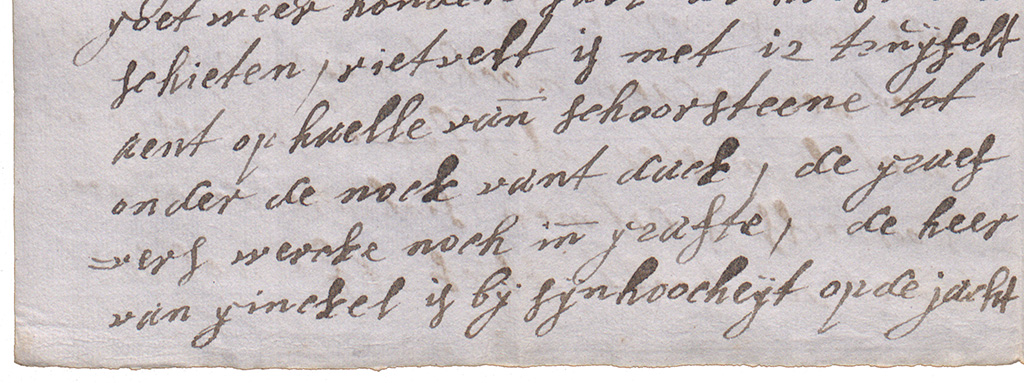 goet weer honden
schieten, rietvelt is met 12 truijfelt
aent ophaelle van schoorsteene tot
onder de nock vant dack, de graef
=vers wercke noch in grafte, de heer
van ginckel is bij sijnhoocheijt opde jacht